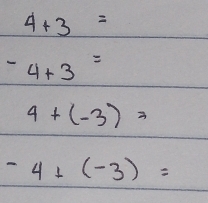 4+3 =
- 4+3 =
4 + (-3) =
- 4 + (-3) =